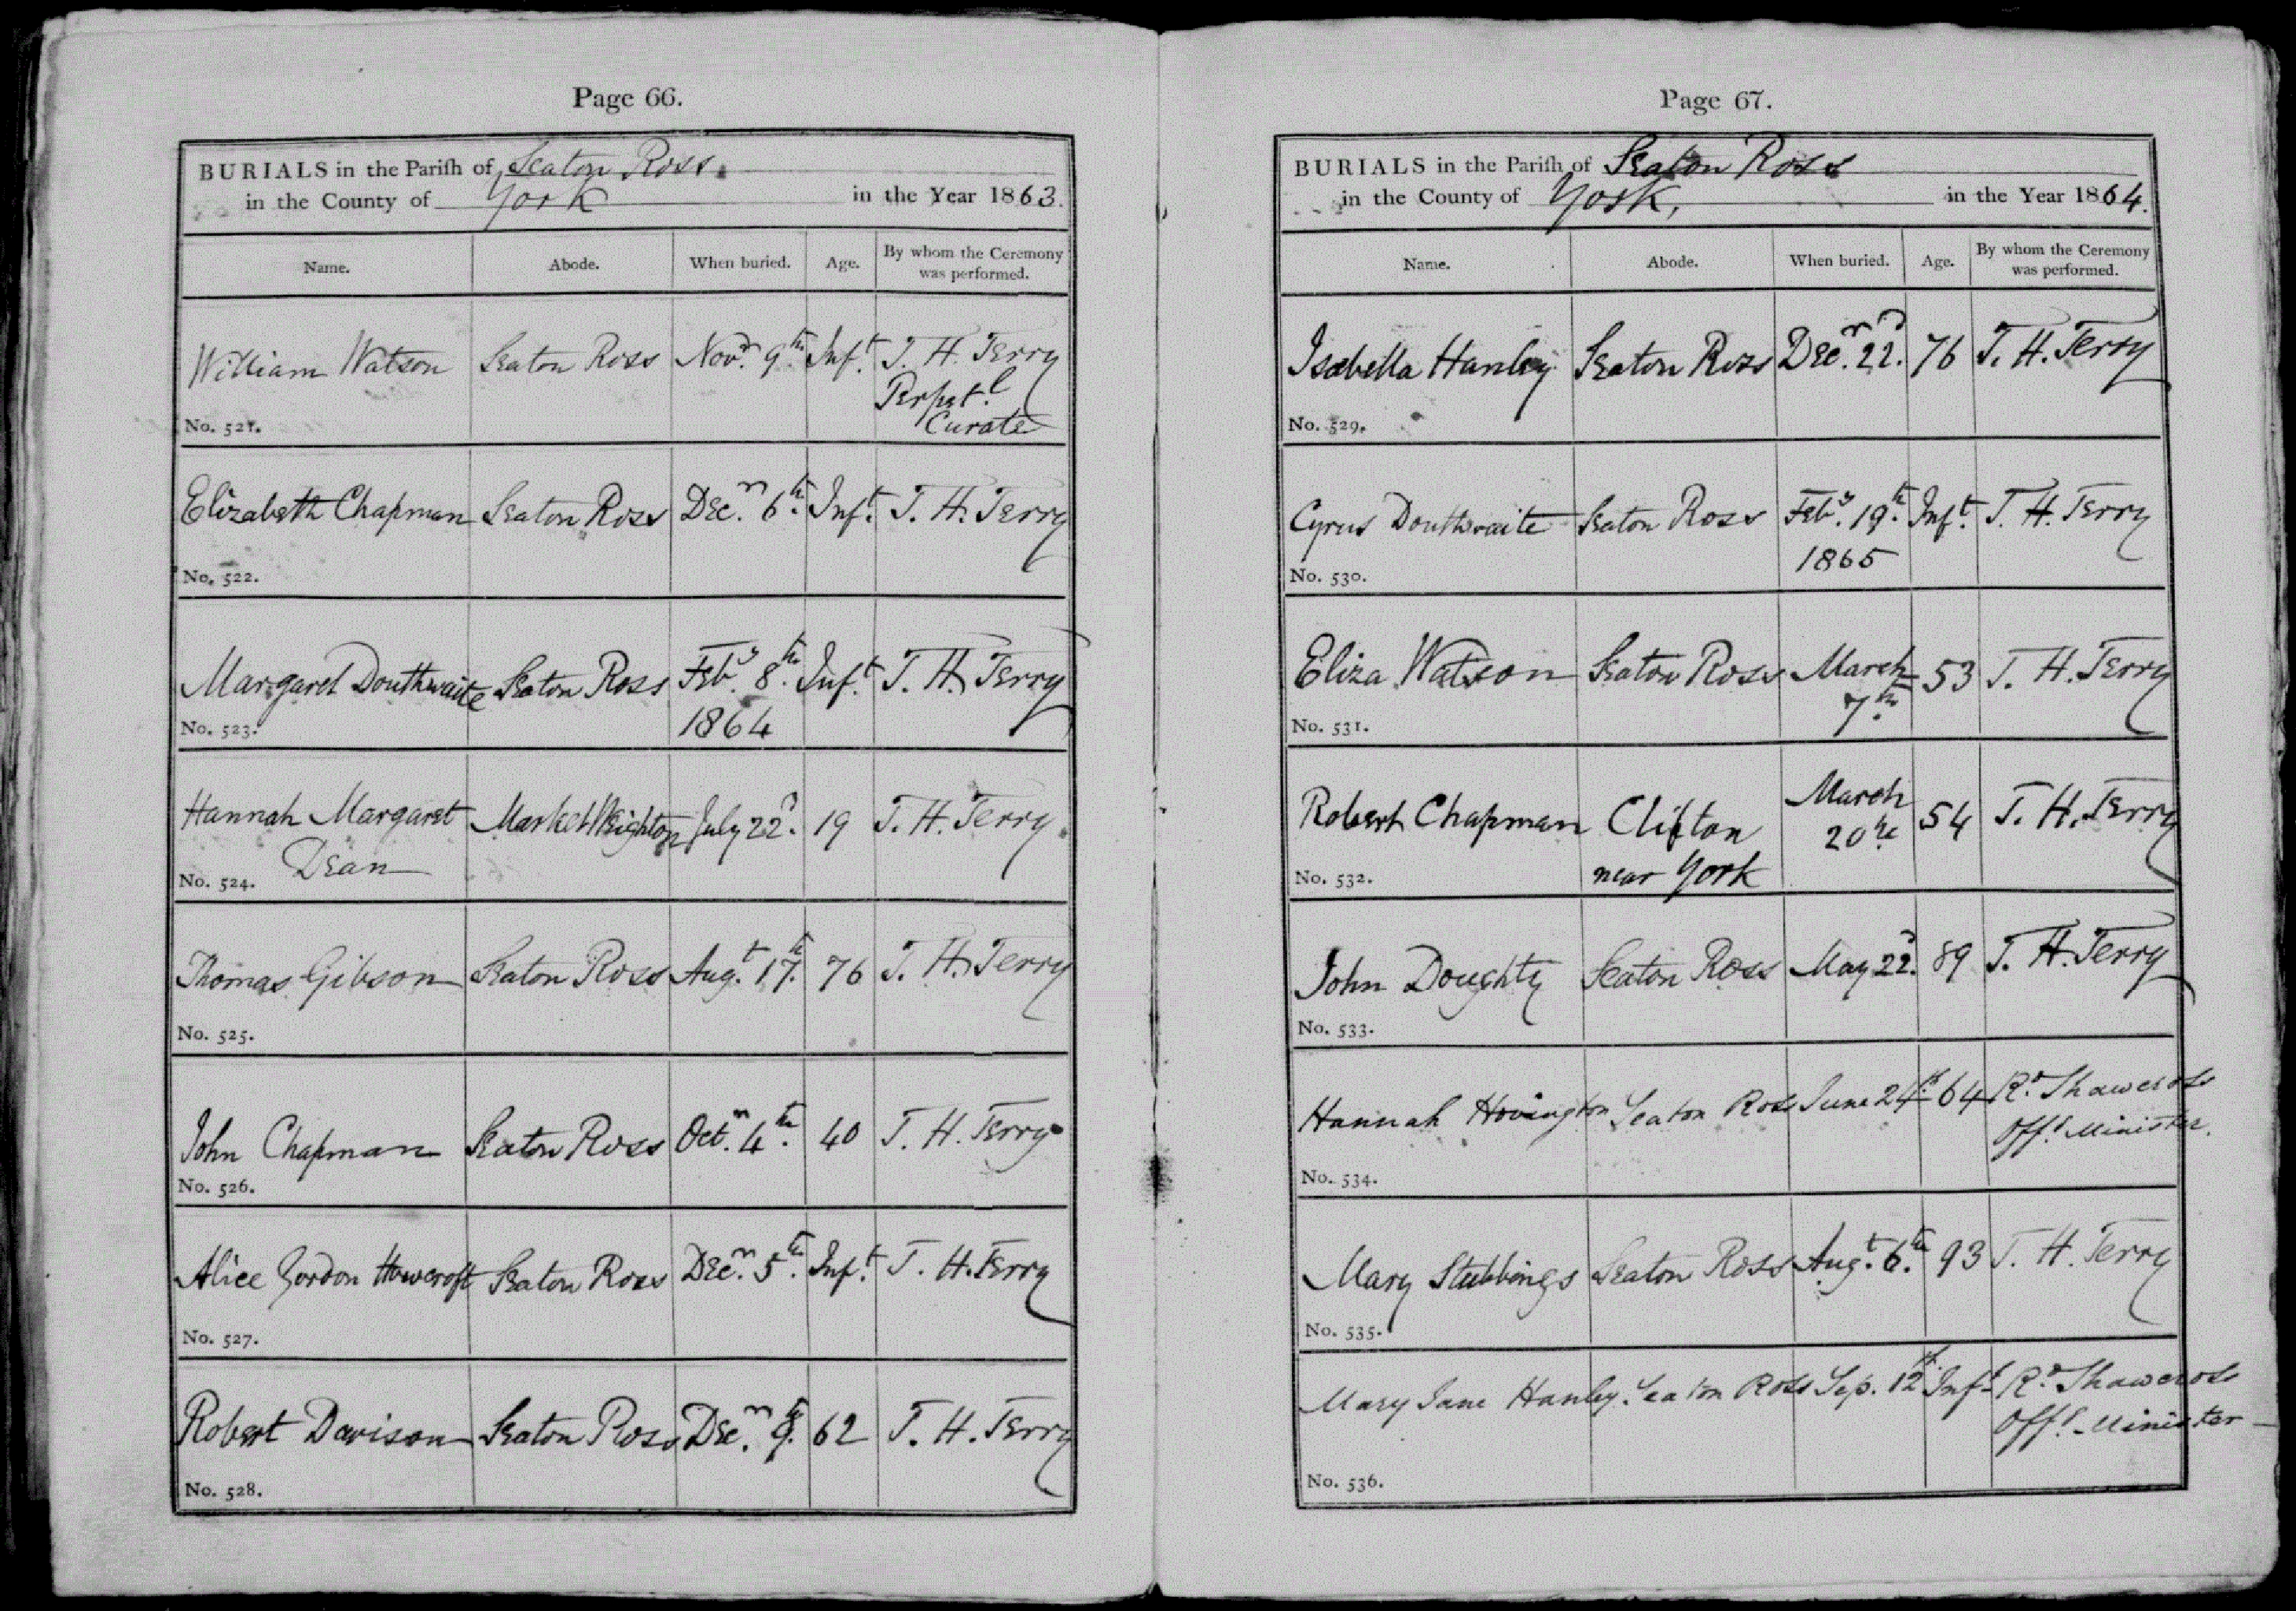 Page 66.
BURIALS in the Parish of Seaton Ross
in the County of York in the Year 1863.
Name. Abode. When buried. Age. By whom the Ceremony was performed.
William Watson Seaton Ross Novr. 9th Inft. T. H. Terry
Perpetl.
Curate
No. 521.
Elizabeth Chapman Seaton Ross Decr. 6th. Inft. T. H. Terry
No. 522.
Margaret Douthwaite Seaton Ross Feby. 8th. Inft. T. H. Terry
No. 523. 1864
Hannah Margaret Market Weighton July 22d. 19 T. H. Terry
Dean
No. 524.
Thomas Gibson Seaton Ross Augt. 17th. 76 T. H. Terry
No. 525.
John Chapman Seaton Ross Octr. 4th. 40 T. H. Terry
No. 526.
Alice Gordon Howcroft Seaton Ross Decr. 5th. Inft. T. H. Terry
No. 527.
Robert Davison Seaton Ross Decr. 9th. 62 T. H. Terry
No. 528.
Page 67.
BURIALS in the Parish of Seaton Ross
in the County of York, in the Year 1864.
Name. Abode. When buried. Age. By whom the Ceremony was performed.
Isabella Hanley Seaton Ross Decr. 22d. 76 T. H. Terry
No. 529.
Cyrus Douthwaite Seaton Ross Feby. 19th. Inft. T. H. Terry
1865
No. 530.
Eliza Watson Seaton Ross March 53 T. H. Terry
7th.
No. 531.
Robert Chapman Clifton March 54 T. H. Terry
near York 20th
No. 532.
John Doughty Seaton Ross May 22d. 89 T. H. Terry
No. 533.
Hannah Hovington Seaton Ross June 24th 64 Rd. Shawcross
Offg. Minister.
No. 534.
Mary Stubbings Seaton Ross Augt. 6th. 93 T. H. Terry
No. 535.
Mary Jane Hanley Seaton Ross Sep. 12th Inft Rd. Shawcross
Offg. Minister
No. 536.